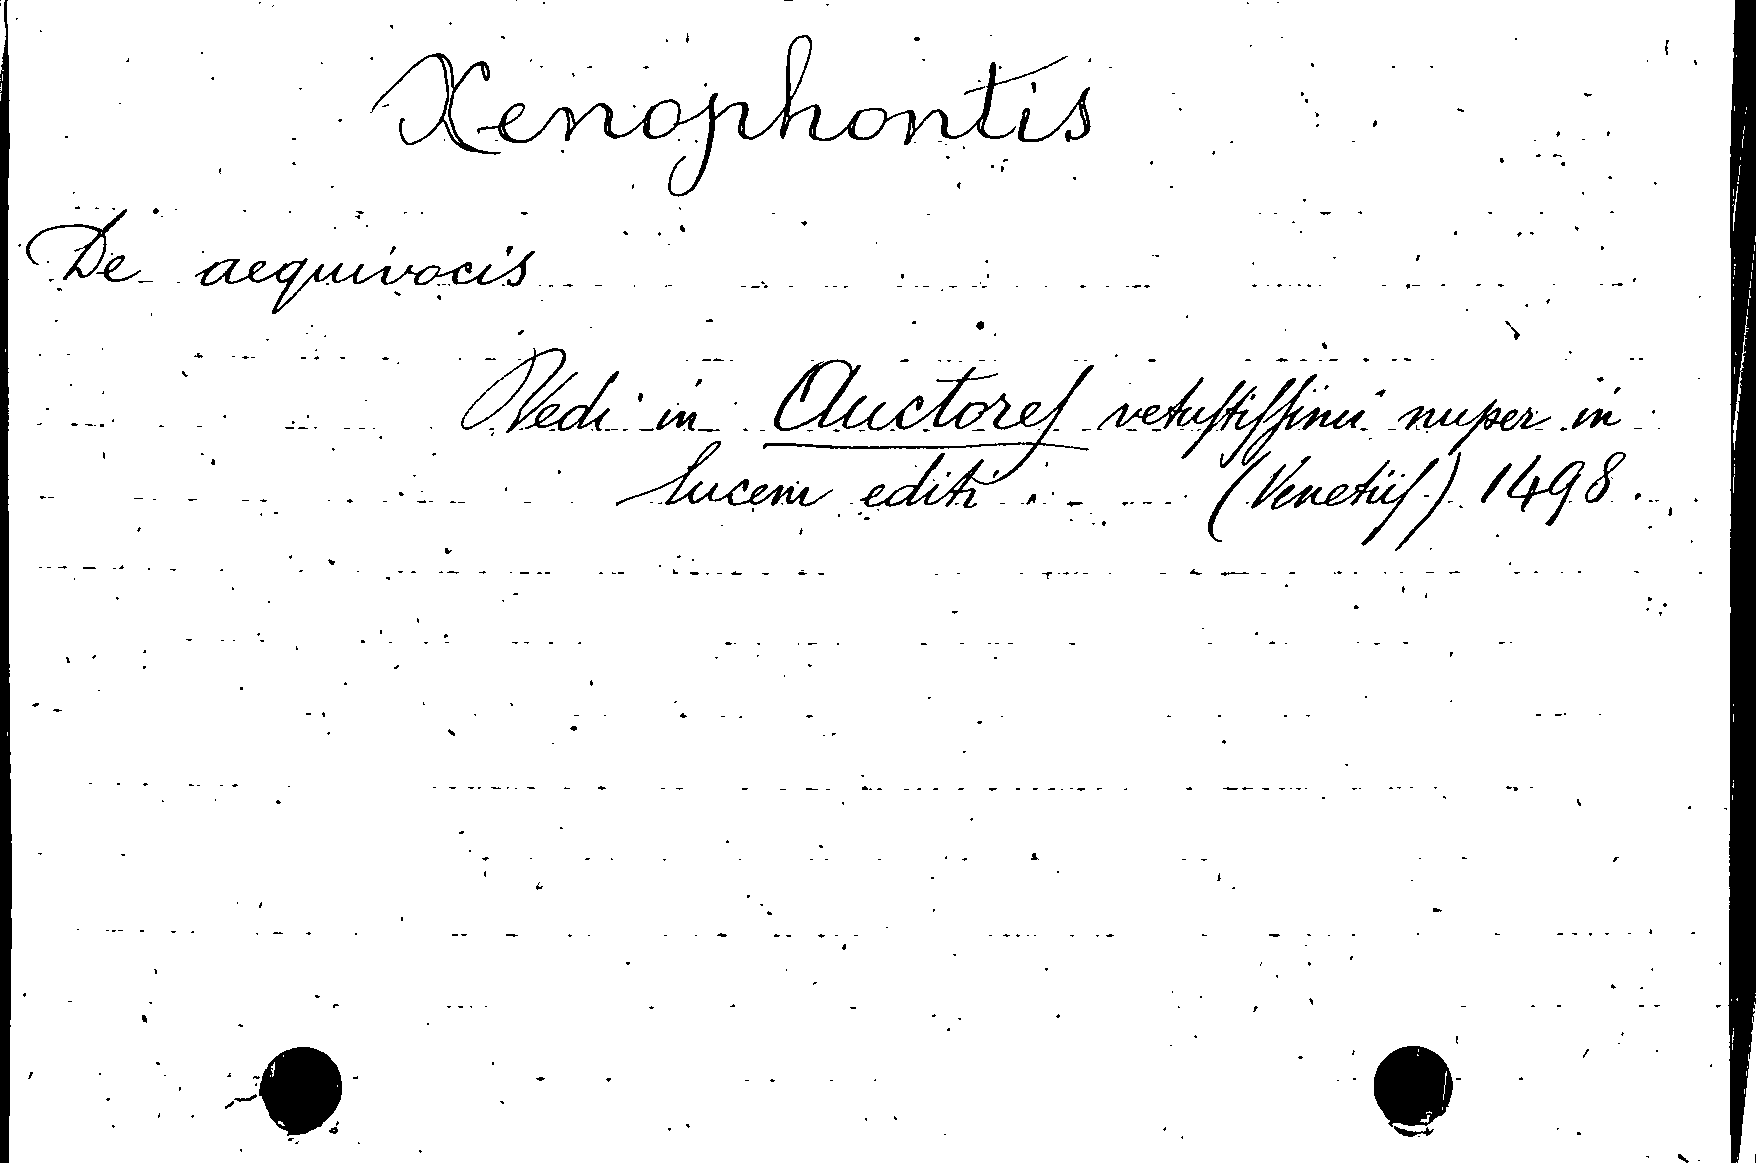 Xenophontis
De aequivocis
Vedi in Auctores vetustissimi nuper in
lucem editi. (Venetiis) 1498.